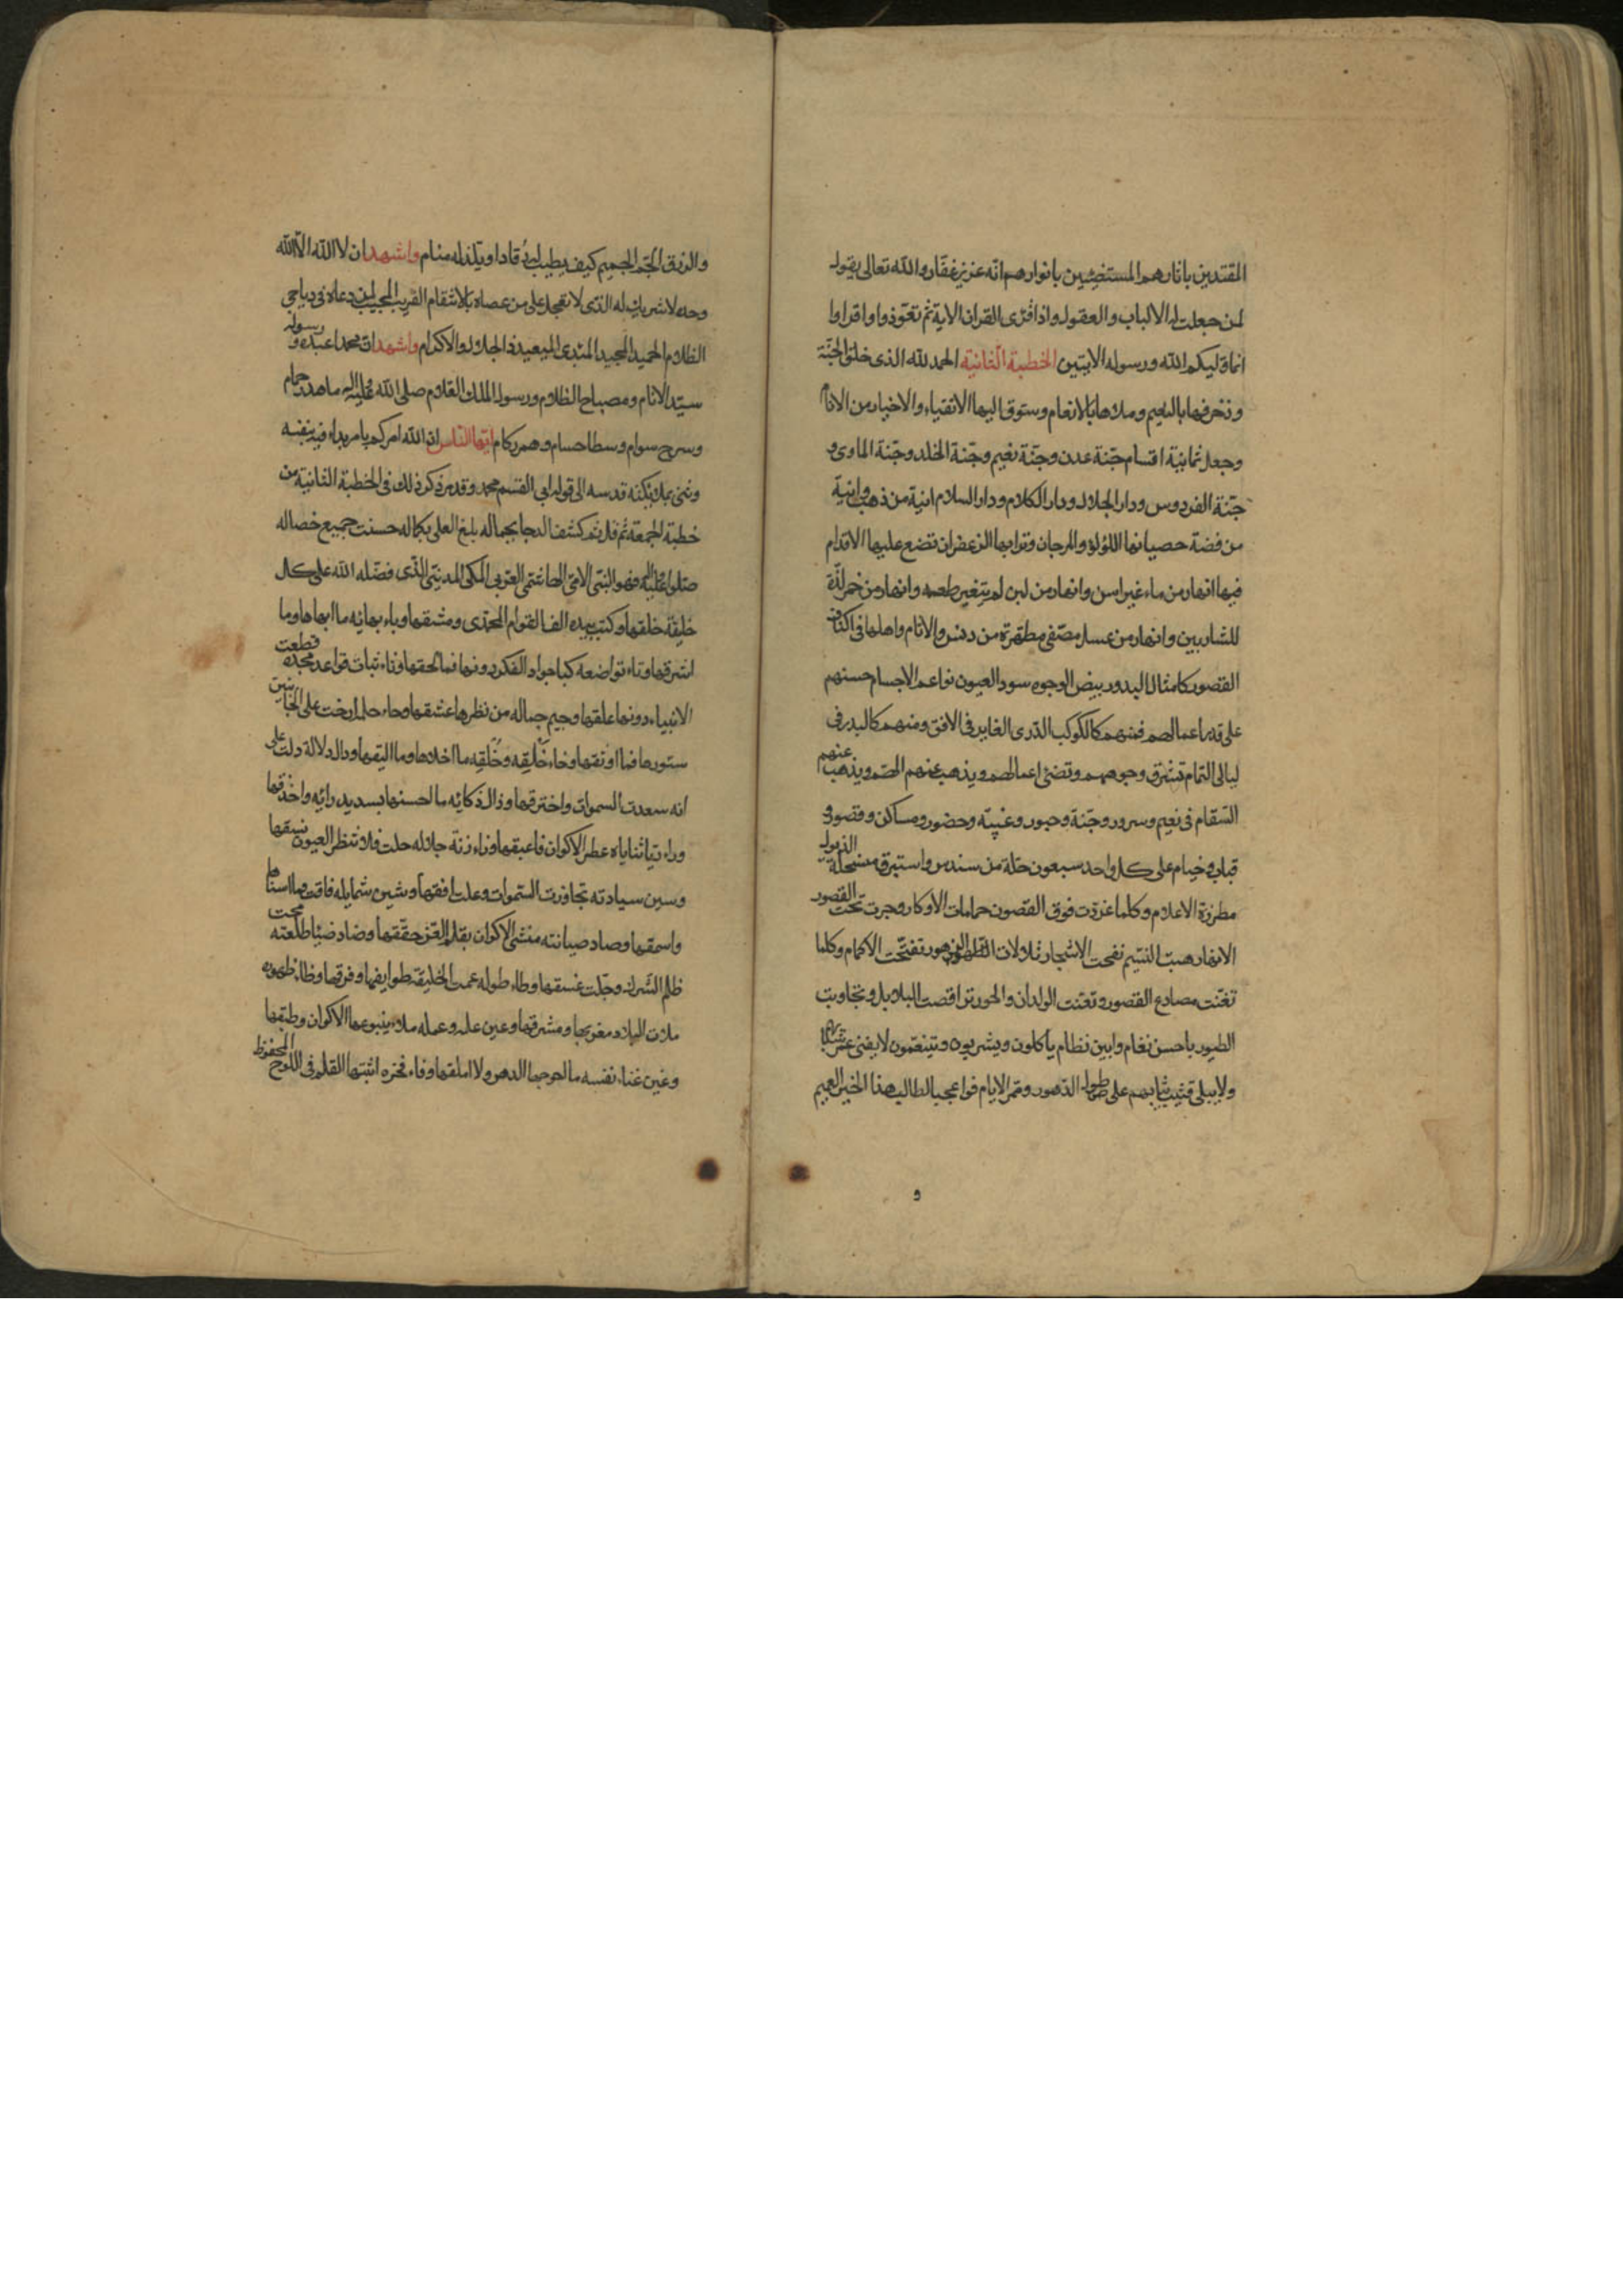 المقتدين باثارهم المستضيئين بانوارهم انه عزيز غفار والله تعالى يقول
لمن جعلت له الالباب والعقول واذا قرى القران الاية ثم تعوذوا واقراوا
انما وليكم الله ورسوله الايتين الخطبة الثانية الحمد لله الذى خلق الجنة
وزخرفها بالنعيم وملاها بالانعام وشوق اليها الاتقياء والاخيار من الانام
وجعل ثمانية اقسام جنة عدن وجنة نعيم وجنة الخلد وجنة الماوى و
جنة الفردوس ودار الجلال ودار الكلام ودار السلام انية من ذهب وانية
من فضة حصيانها اللؤلؤ والمرجان وترابها الزعفران تضع عليها الاقدام
فيها انهار من ماء غير اسن وانهار من لبن لم يتغير طعمه وانهار من خمر لذة
للشاربين وانهار من عسل مصفى مطهرة من دنس والاثام واهلها فى اكناف
القصور كامثال البدور بيض الوجوه سود العيون نواعم الاجسام حسنهم
على قدر اعمالهم فمنهم كالكوكب الدرى الغابر فى الافق ومنهم كالبدر فى
ليالى التمام تشرق وجوههم وتضئ اعمالهم ويذهب عنهم الهم ويذهب عنهم
السقام فى نعيم وسرور وجنة وحبور وغيبة وحضور ومساكن وقصور و
قباب وخيام على كل واحد سبعون حلة من سندس واستبرق مسحلة الذيول
مطرزة الاعلام وكلما غردت فوق الغصون حمامات الاوكار وجرت تحت القصور
الانهار هبت النسيم نفحت الاشجار تفتحت الاكمام وكلما
تغنت مصادع القصور وتغنت الولدان والحور تراقصت البلابل وتجاوبت
الطيور باحسن نغام وابين نظام ياكلون ويشربون ويتنعمون لا يفنى شبابهم
ولا يبلى ثيابهم على طول الدهور وممر الايام فوا عجبا لطالب هذا الخير العميم
و
والرزق الجم الجميم كيف يطيب له رقادا ويلذ له منام واشهد ان لا اله الا الله
وحده لا شريك له الذى لا تعجل على من عصاه بالانتقام القريب المجيب لمن دعاه فى دياجى
الظلام الحميد المجيد المبدى المعيد ذا الجلال والاكرام واشهد ان محمدا عبده ورسوله
سيد الانام ومصباح الظلام ورسول الملك العلام صلى الله عليه واله ما هدر حمام
وسرح سوام وسطا حسام وهمر ركام ايها الناس ان الله امركم بامر بداء فيه بنفسه
وثنى بملائكته قدسه الى قوله ابى القسم محمد وقد مر ذكر ذلك فى الخطبة الثانية من
خطبة الجمعة ثم قل ثم كشف الدجا بجماله بلغ العلى بكماله حسنت جميع خصاله
صلوا عليه واله فهو النبى الامى الهاشمى العربى المكى المدنى الذى فضله الله على كل
خليقة خلقها وكتب بيده الف القوام المحمدى ومشقها وباء بهائه ما ابهاها وما
اشرقها وتاء تواضعه كبا جواد الفكر دونها فما لحقها وثاء ثبات قواعد مجده قطعت
الانبياء دونها علقها وجيم جماله من نظرها عشقها وحاء حلم ارخت على الجانين
ستورها فما اوثقها وخاء خليقه وخلقه ما احلاها وما اليقها ودال دلالة دلت على
انه سعدت السموات واخترقها وذال ذكائه ما احسنها بسديد رائه واحذقها
وراء ريا ثناياه عطر الاكوان فاعبقها وزاء زنة جلاله حلت فلا تنظر العيون نسقها
وسين سيادته تجاوزت السموات وعلت افقها وشين شمايله فاقت ما اسناها
واسمقها وصاد صيانته منشى الاكوان بقلم العز حققها وضاد ضيا طلعته محت
ظلم الشرك وجلت غسقها وطاء طوله عمت الخليقة طوايفها وفرقها وظاء ظهوره
ملات البلاد مغربها ومشرقها وعين علمه وعمله ملاء ينبوعها الاكوان وطبقها
وغين غناء نفسه ما احوجها الدهر ولا املقها وفاء فخره اثبتها القلم فى اللوح المحفوظ